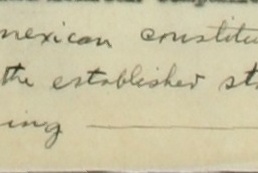 mexican constitu
the established st
ing